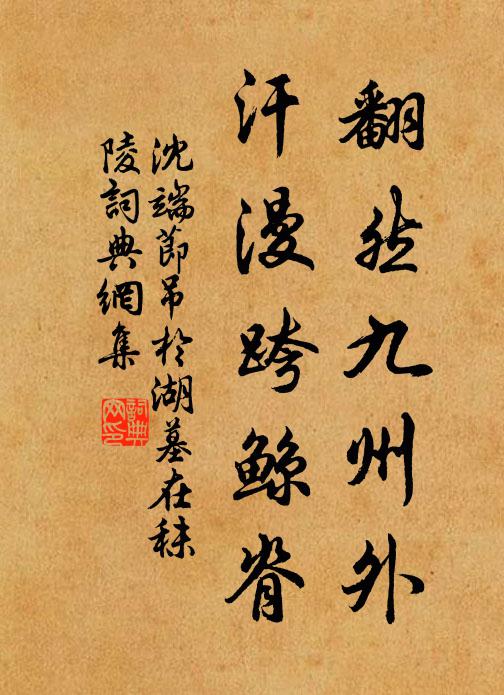 翻然九州外
汗漫跨鲸脊
沈端節吊于湖墓在秣
陵詞典網集
詞典
网印